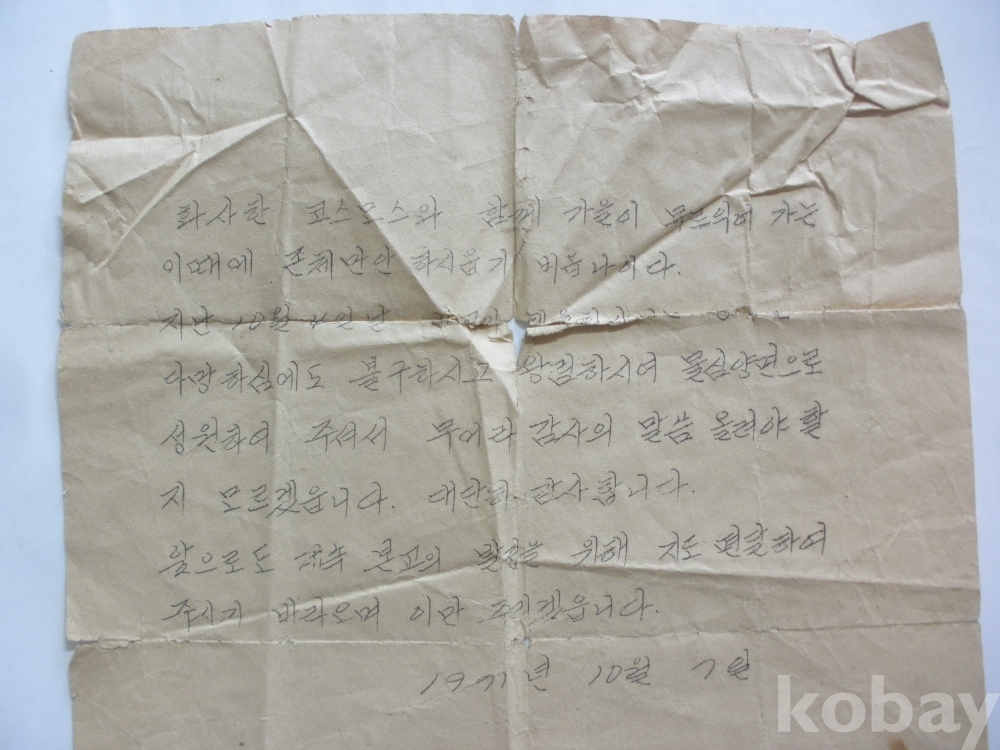 화사한 코스모스와 함께 가을이 무르익어 가는
이때에 존체만안 하시옵기 비옵나이다.
지난 10월 4일날
다망하심에도 불구하시고 왕림하시여 물심양면으로
성원하여 주셔서 무어라 감사의 말씀 올려야 할
지 모르겠읍니다. 대단히 감사합니다.
앞으로도 계속 본교의 발전을 위해 지도 편달하여
주시기 바라오며 이만 줄이겠읍니다.
1971년 10월 7일
kobay